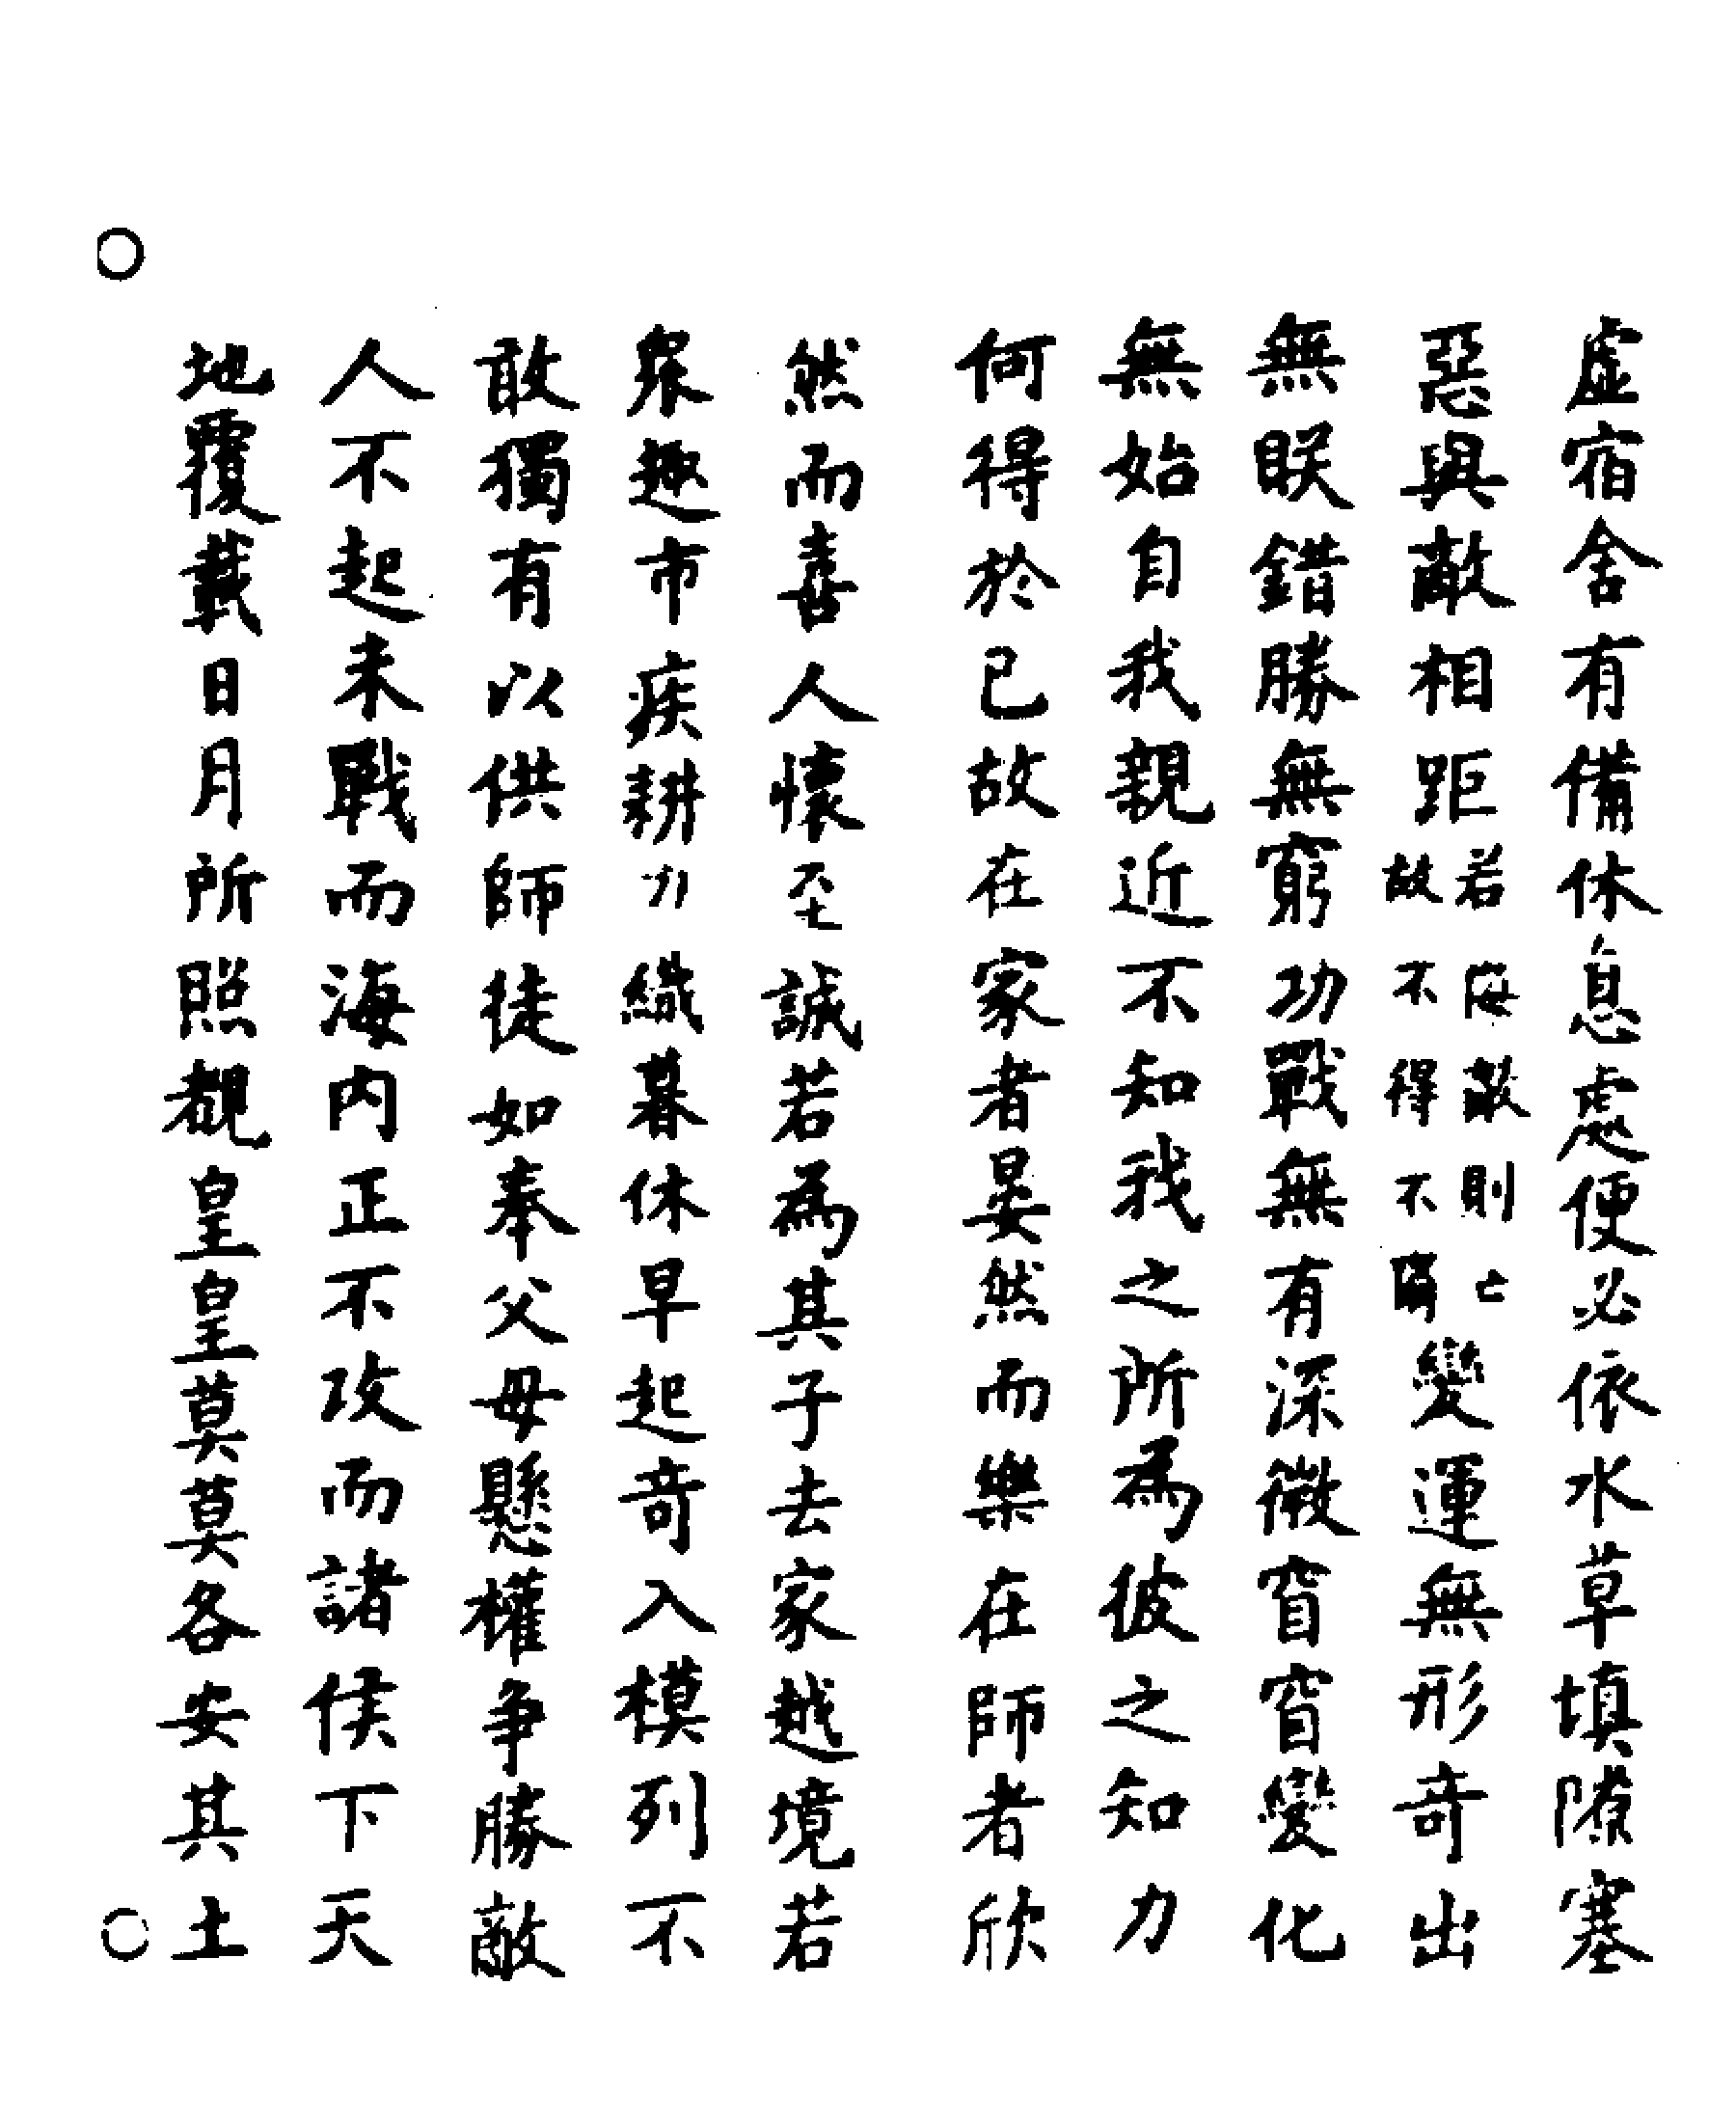 虛宿舍有備休息處便必依水草填隙塞
惡與敵相距若海敵則亡故不得不隅變運無形奇出
無眹錯勝無窮功戰無有深微窅窅變化
無始自我親近不知我之所為彼之知力
何得於已故在家者晏然而樂在師者欣
然而喜人懷至誠若為其子去家越境若
衆趣市疾耕力織暮休早起奇入模列不
敢獨有以供師徒如奉父母懸權争勝敵
人不起未戰而海内正不攻而諸侯下天
地覆載日月所照覩皇皇莫莫各安其土